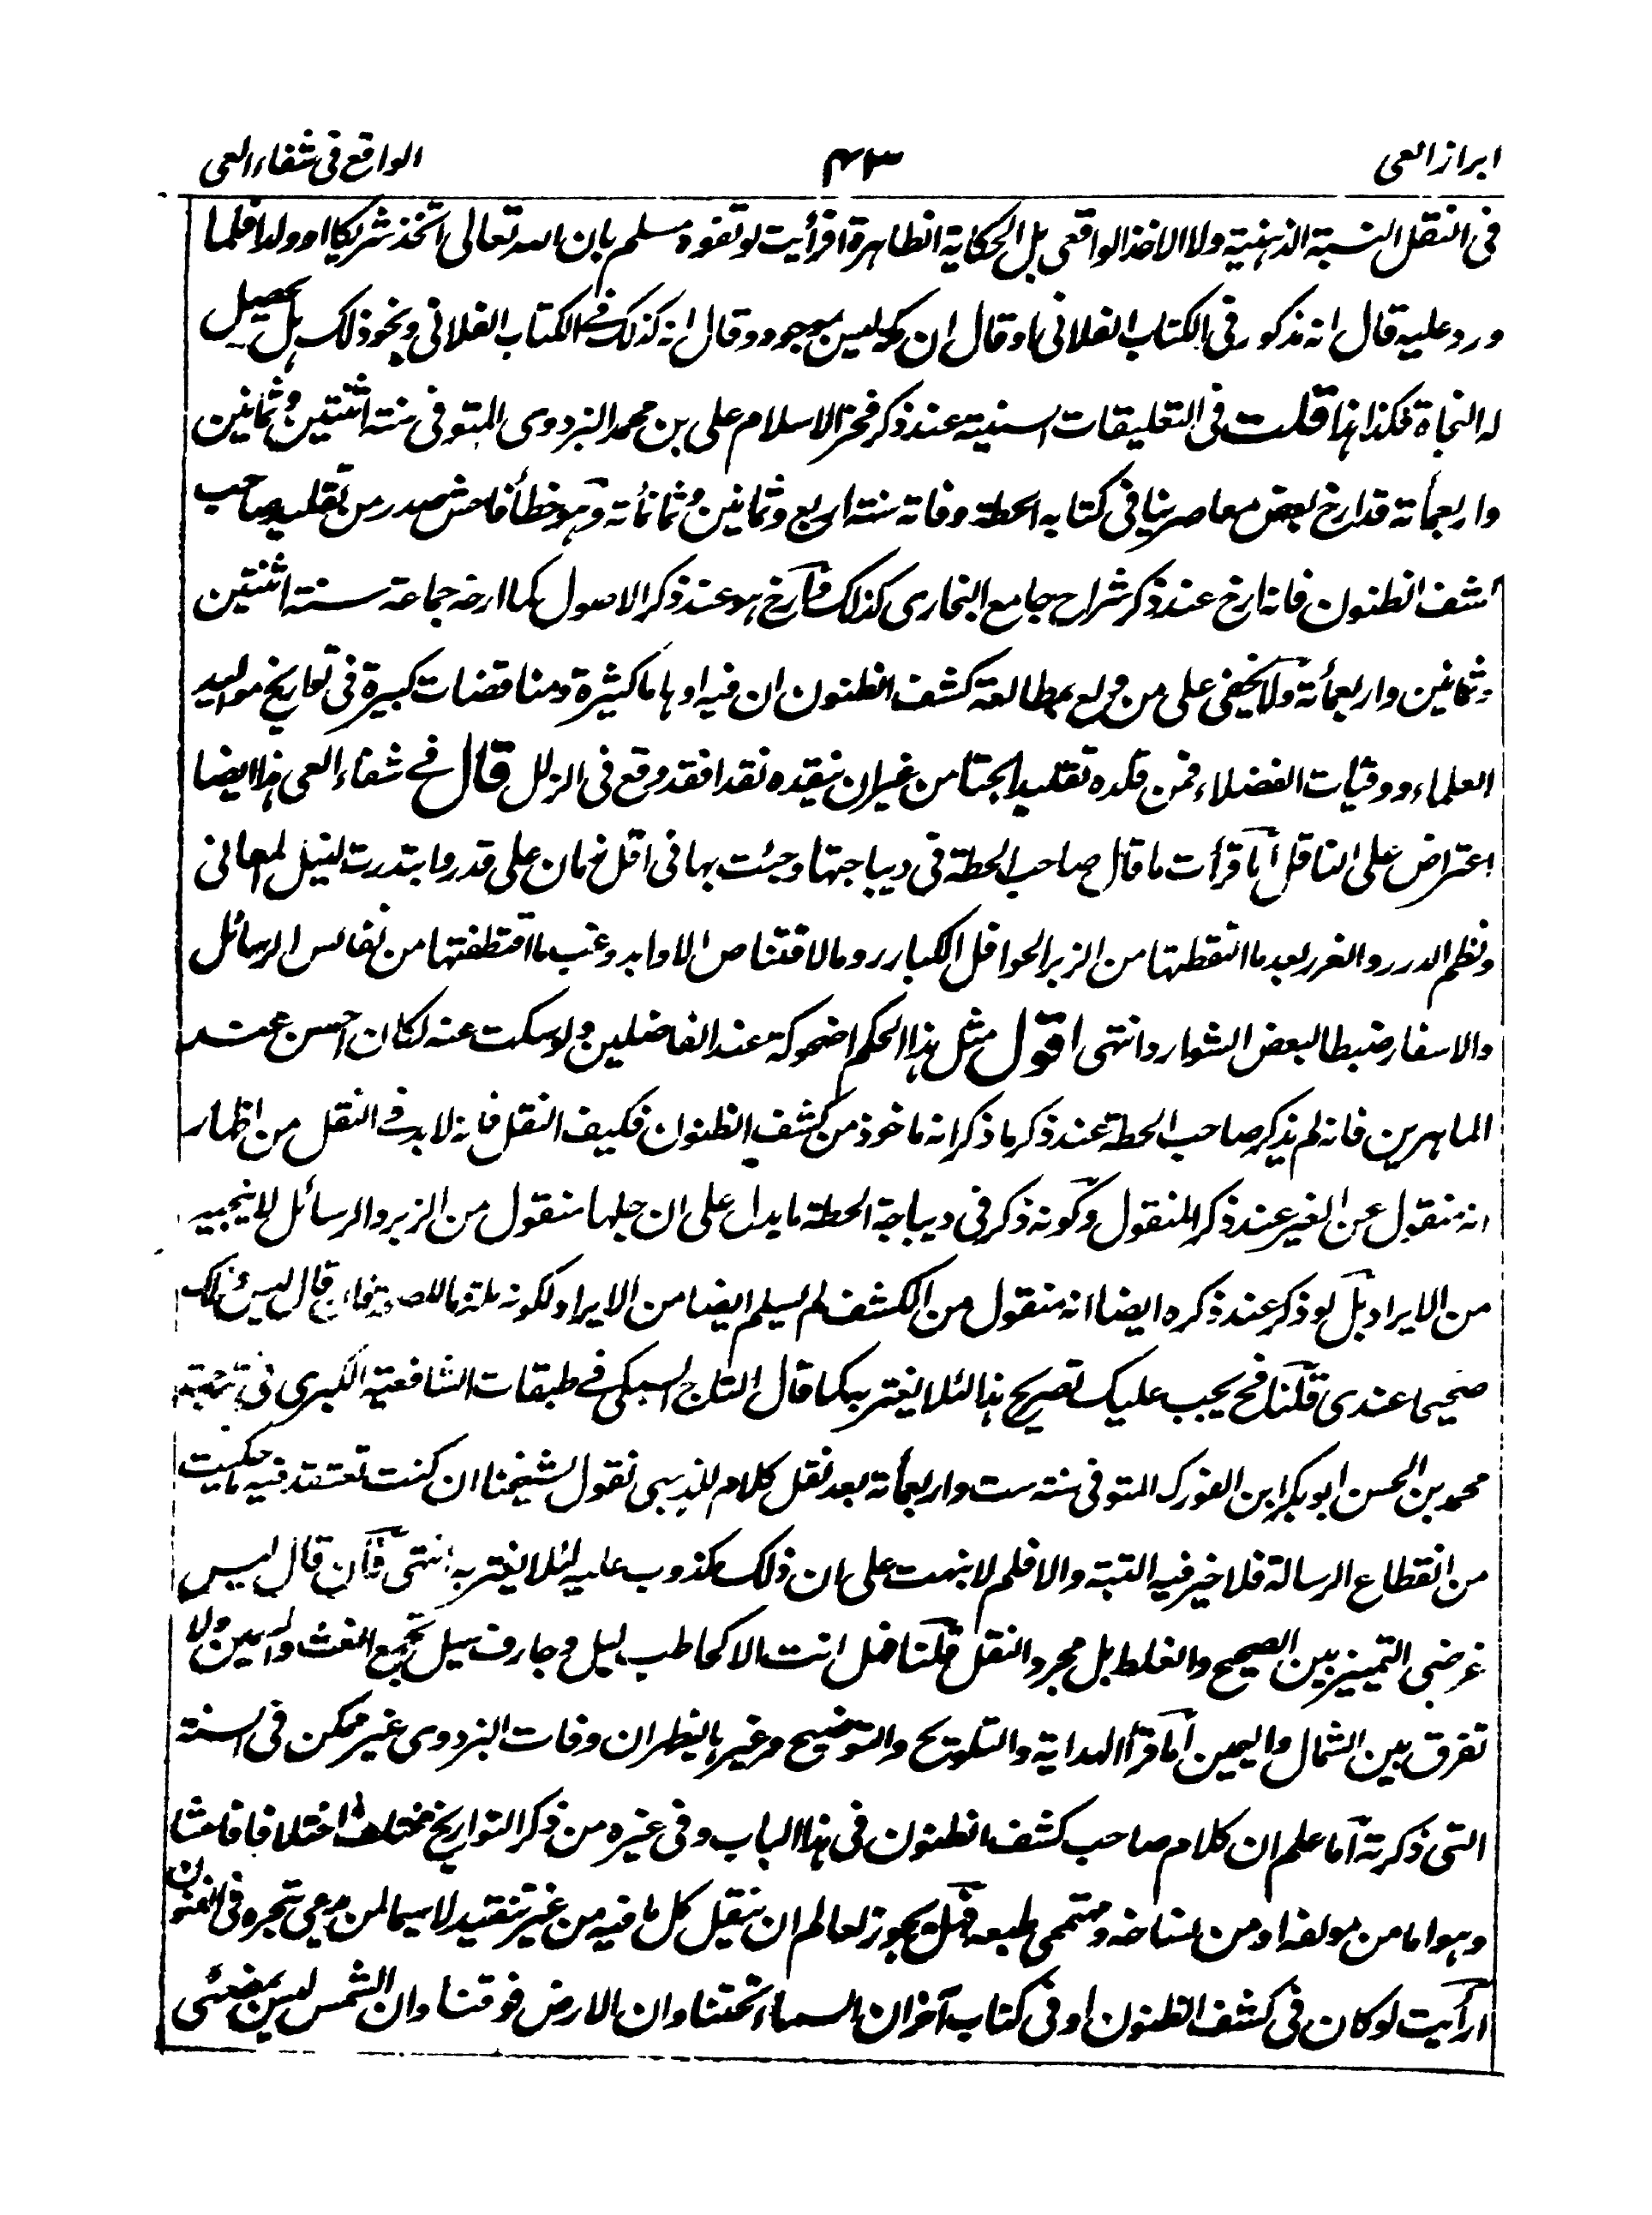 ابراز الغی
۴۳
الواقع فی شفاء العی
فی النقل النسبة الذہنیة ولا الاخذ الواقعی بل الحکایة الظاہرة افرأیت لو تفوہ مسلم بان اللہ تعالی اتخذ شریکا او ولدا فلما
ورد علیہ قال انہ مذکور فی الکتاب الفلانی او قال ان لیس بموجود وقال انہ کذلک فی الکتاب الفلانی ونحو ذلک ہل یحصیل
لہ النجاة فکذا ہذا قلت فی التعلیقات السنیة عند ذکر فخر الاسلام علی بن محمد البزدوی المتوفی سنة اثنتین وثمانین
واربعمأة قد ارخ بعض معاصرینا فی کتابہ الحطة وفاتہ سنة اربع وثمانین وثمانمأة وہو خطأ فاحش صدر من تقلید صاحب
کشف الظنون فانہ ارخ عند ذکر شراح جامع البخاری کذلک وارخ ہو عند ذکر الاصول کما ارخہ جماعة سنة اثنتین
وثمانین واربعمأة ولا یخفی علی من ولع بمطالعة کشف الظنون ان فیہ اوہاما کثیرة ومناقضات کبیرة فی تواریخ موالید
العلماء ووفیات الفضلاء فمن قلدہ تقلیدا بحتا من غیر ان ینقدہ نقدا فقد وقع فی الزلل قال فی شفاء العی ہذا ایضا
اعتراض علی الناقل اما قرأت ما قال صاحب الحطة فی دیباجتہا وجئت بہا فی اقل زمان علی قدر وابتدرت لنیل المعانی
ونظم الدرر والغرر بعد ما التقطتہا من الزبر الحوافل الکبار روما لاقتناص الاوابد وغب ما اقتطفتہا من نفائس الرسائل
والاسفار ضبطا لبعض الشوارد انتہی اقول مثل ہذا الحکم اضحوکة عند الفاضلین ولو سکت عنہ لکان احسن عند
الماہرین فانہ لم یذکر صاحب الحطة عند ذکر ما ذکر انہ ماخوذ من کشف الظنون فکیف النقل فانہ لا بد فی النقل من اظہار
انہ منقول عن الغیر عند ذکر المنقول وکونہ ذکر فی دیباجة الحطة ما یدل علی ان جلہا منقول من الزبر والرسائل لا ینجیہ
من الایراد بل لو ذکر عند ذکرہ ایضا انہ منقول من الکشف لم یسلم ایضا من الایراد لکونہ ملتزما للصحة فان قال لیس ذلک
صحیحا عندی قلنا فح یجب علیک تصریح ہذا لئلا یغتر بہ کما قال التاج السبکی فی طبقات الشافعیة الکبری فی ترجمة
محمد بن الحسن ابو بکر ابن الفورک المتوفی سنة ست واربعمأة بعد نقل کلام للذہبی نقول لشیخنا ان کنت تعتقد فیہ ما حکیت
من انقطاع الرسالة فلا خیر فیہ البتة والا فلم لا نبہت علی ان ذلک مکذوب علیہ لئلا یغتر بہ انتہی فان قال لیس
غرضی التمییز بین الصحیح والغلط بل مجرد النقل قلنا فہل انت الا کحاطب لیل وجارف سیل تجمع الغث والسمین ولا
تفرق بین الشمال والیمین اما قرأ الہدایة والتلویح والتوضیح وغیرہا لیظہر ان وفات البزدوی غیر ممکن فی السنة
التی ذکرتہ اما علم ان کلام صاحب کشف الظنون فی ہذا الباب وفی غیرہ من ذکر التواریخ مختلف اختلافا فاحشا
وہو اما من مولفہ او من نساخہ ومہتممی طبعہ فہل یجوز لعالم ان ینقل کل ما فیہ من غیر تنقید لا سیما لمن یدعی تبحرہ فی الفنون
ارأیت لو کان فی کشف الظنون او فی کتاب آخر ان السماء تحتنا وان الارض فوقنا وان الشمس لیس بمضئی